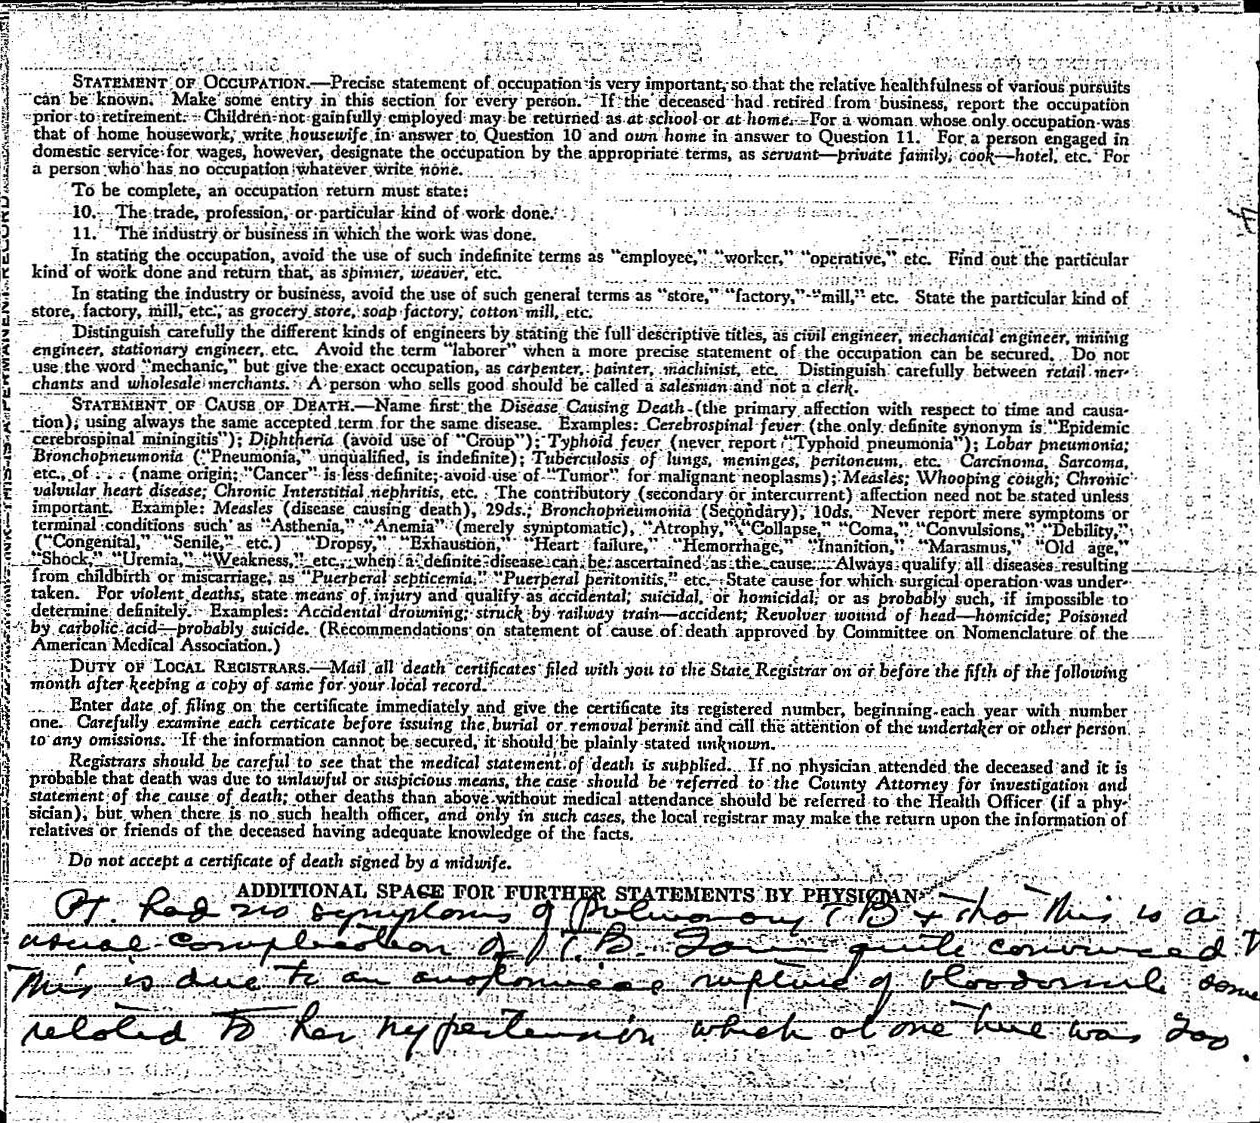 STATEMENT OF OCCUPATION.—Precise statement of occupation is very important, so that the relative healthfulness of various pursuits
can be known. Make some entry in this section for every person. If the deceased had retired from business, report the occupation
prior to retirement. Children not gainfully employed may be returned as at school or at home. For a woman whose only occupation was
that of home housework, write housewife in answer to Question 10 and own home in answer to Question 11. For a person engaged in
domestic service for wages, however, designate the occupation by the appropriate terms, as servant—private family, cook—hotel, etc. For
a person who has no occupation whatever write none.
To be complete, an occupation return must state:
10. The trade, profession, or particular kind of work done.
11. The industry or business in which the work was done.
In stating the occupation, avoid the use of such indefinite terms as "employee," "worker," "operative," etc. Find out the particular
kind of work done and return that, as spinner, weaver, etc.
In stating the industry or business, avoid the use of such general terms as "store," "factory," "mill," etc. State the particular kind of
store, factory, mill, etc., as grocery store, soap factory, cotton mill, etc.
Distinguish carefully the different kinds of engineers by stating the full descriptive titles, as civil engineer, mechanical engineer, mining
engineer, stationary engineer, etc. Avoid the term "laborer" when a more precise statement of the occupation can be secured. Do not
use the word "mechanic," but give the exact occupation, as carpenter, painter, machinist, etc. Distinguish carefully between retail mer-
chants and wholesale merchants. A person who sells good should be called a salesman and not a clerk.
STATEMENT OF CAUSE OF DEATH.—Name first the Disease Causing Death (the primary affection with respect to time and causa-
tion), using always the same accepted term for the same disease. Examples: Cerebrospinal fever (the only definite synonym is "Epidemic
cerebrospinal miningitis"); Diphtheria (avoid use of "Croup"); Typhoid fever (never report "Typhoid pneumonia"); Lobar pneumonia;
Bronchopneumonia ("Pneumonia," unqualified, is indefinite); Tuberculosis of lungs, meninges, peritoneum, etc. Carcinoma, Sarcoma,
etc., of . . . (name origin; "Cancer" is less definite; avoid use of "Tumor" for malignant neoplasms); Measles; Whooping cough; Chronic
valvular heart disease; Chronic Interstitial nephritis, etc. The contributory (secondary or intercurrent) affection need not be stated unless
important. Example: Measles (disease causing death), 29ds.; Bronchopneumonia (Secondary), 10ds. Never report mere symptoms or
terminal conditions such as "Asthenia," "Anemia" (merely symptomatic), "Atrophy," "Collapse," "Coma," "Convulsions," "Debility,"
("Congenital," "Senile," etc.) "Dropsy," "Exhaustion," "Heart failure," "Hemorrhage," "Inanition," "Marasmus," "Old age,"
"Shock," "Uremia," "Weakness," etc., when a definite disease can be ascertained as the cause. Always qualify all diseases resulting
from childbirth or miscarriage, as "Puerperal septicemia," "Puerperal peritonitis," etc. State cause for which surgical operation was under-
taken. For violent deaths, state means of injury and qualify as accidental, suicidal, or homicidal, or as probably such, if impossible to
determine definitely. Examples: Accidental drowning; struck by railway train—accident; Revolver wound of head—homicide; Poisoned
by carbolic acid—probably suicide. (Recommendations on statement of cause of death approved by Committee on Nomenclature of the
American Medical Association.)
DUTY OF LOCAL REGISTRARS.—Mail all death certificates filed with you to the State Registrar on or before the fifth of the following
month after keeping a copy of same for your local record.
Enter date of filing on the certificate immediately and give the certificate its registered number, beginning each year with number
one. Carefully examine each certicate before issuing the burial or removal permit and call the attention of the undertaker or other person
to any omissions. If the information cannot be secured, it should be plainly stated unknown.
Registrars should be careful to see that the medical statement of death is supplied. If no physician attended the deceased and it is
probable that death was due to unlawful or suspicious means, the case should be referred to the County Attorney for investigation and
statement of the cause of death; other deaths than above without medical attendance should be referred to the Health Officer (if a phy-
sician), but when there is no such health officer, and only in such cases, the local registrar may make the return upon the information of
relatives or friends of the deceased having adequate knowledge of the facts.
Do not accept a certificate of death signed by a midwife.
ADDITIONAL SPACE FOR FURTHER STATEMENTS BY PHYSICIAN
Pt. had no symptoms of Pulmonary TB + tho this is a
usual complication of T.B. I am quite convinced
this is due to an rupture of
related to her hypertension which at one time was 200.